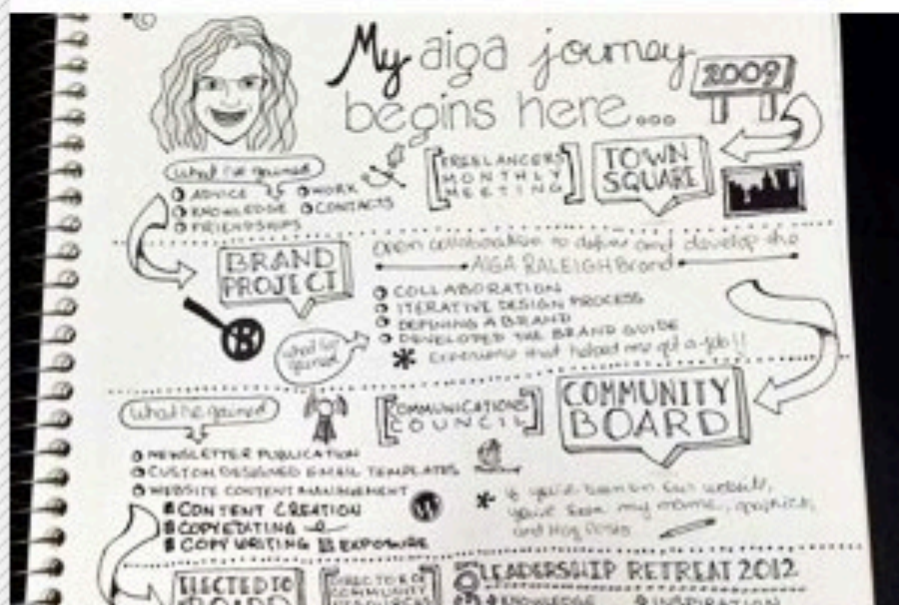 My aiga journey
begins here...
2009
what i've gained
ADVICE
WORK
KNOWLEDGE
CONTACTS
FRIENDSHIPS
[FREELANCERS
MONTHLY
MEETING]
TOWN
SQUARE
BRAND
PROJECT
Open collaboration to define and develop the
AIGA RALEIGH Brand
COLLABORATION
ITERATIVE DESIGN PROCESS
DEFINING A BRAND
DEVELOPED THE BRAND GUIDE
* Experience that helped me get a job!!
what i've
gained
what i've gained
[COMMUNICATIONS
COUNCIL]
COMMUNITY
BOARD
NEWSLETTER PUBLICATION
CUSTOM DESIGNED EMAIL TEMPLATES
WEBSITE CONTENT MANAGEMENT
CONTENT CREATION
COPYEDITING
COPY WRITING
EXPOSURE
* If you've been on our website,
you've seen my name, graphics,
and blog posts
ELECTED TO
BOARD
[DIRECTOR OF
COMMUNITY
RESOURCES]
LEADERSHIP RETREAT 2012
KNOWLEDGE
INSPIRATION